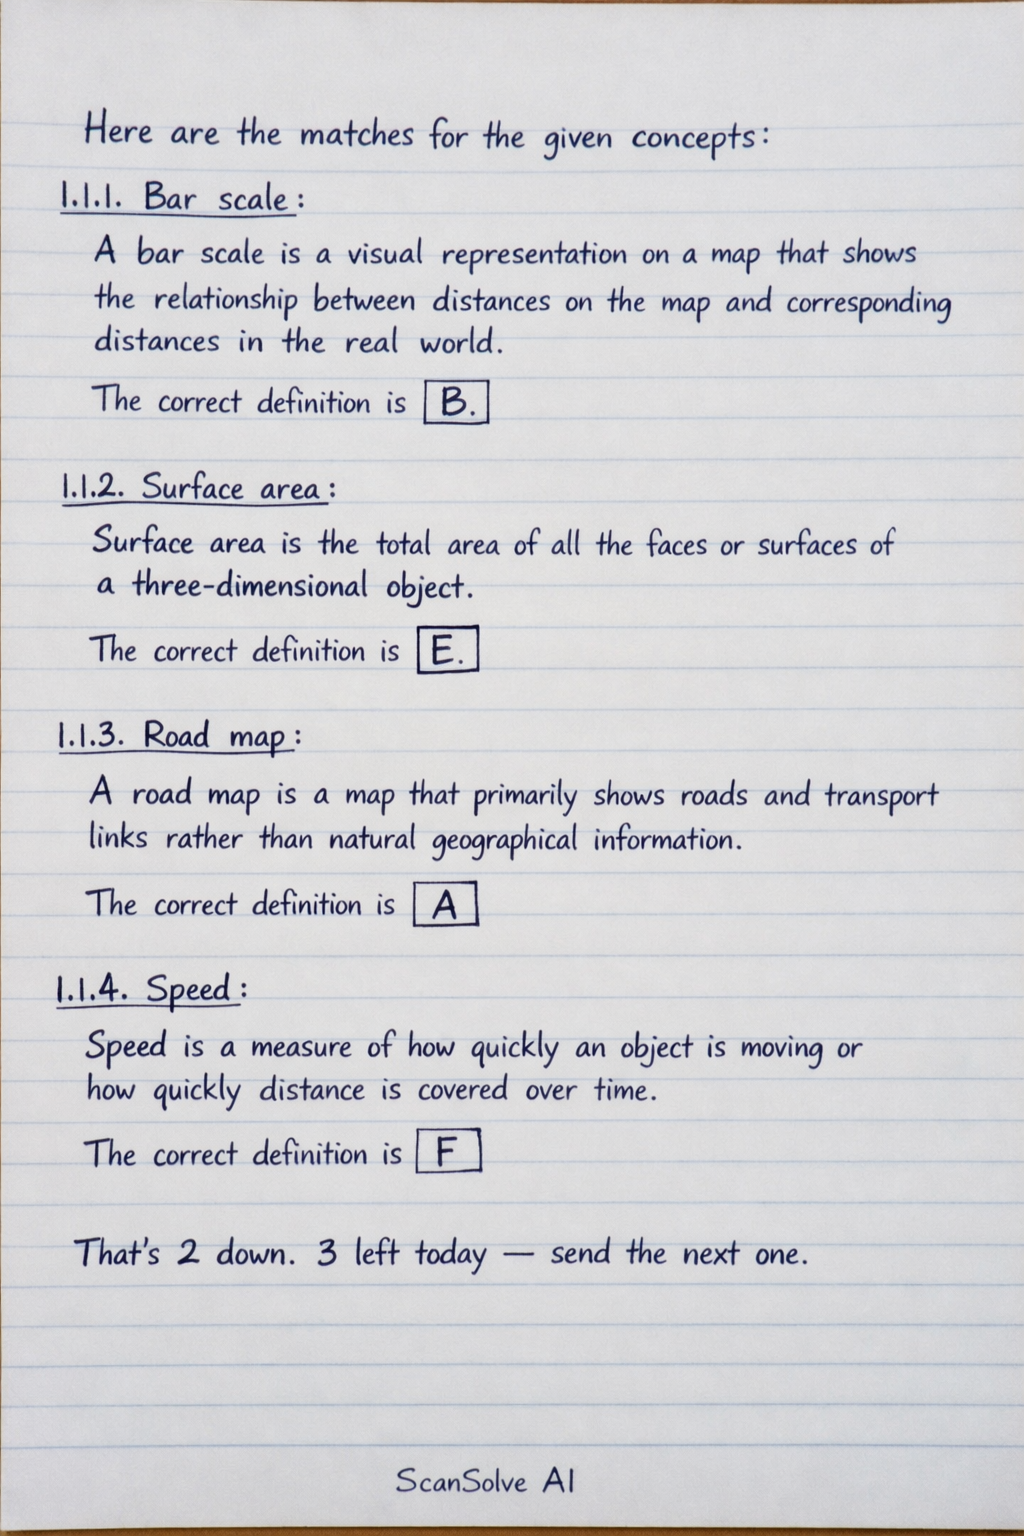 Here are the matches for the given concepts:
1.1.1. Bar scale:
A bar scale is a visual representation on a map that shows
the relationship between distances on the map and corresponding
distances in the real world.
The correct definition is B.
1.1.2. Surface area:
Surface area is the total area of all the faces or surfaces of
a three-dimensional object.
The correct definition is E.
1.1.3. Road map:
A road map is a map that primarily shows roads and transport
links rather than natural geographical information.
The correct definition is A
1.1.4. Speed:
Speed is a measure of how quickly an object is moving or
how quickly distance is covered over time.
The correct definition is F
That's 2 down. 3 left today — send the next one.
ScanSolve AI